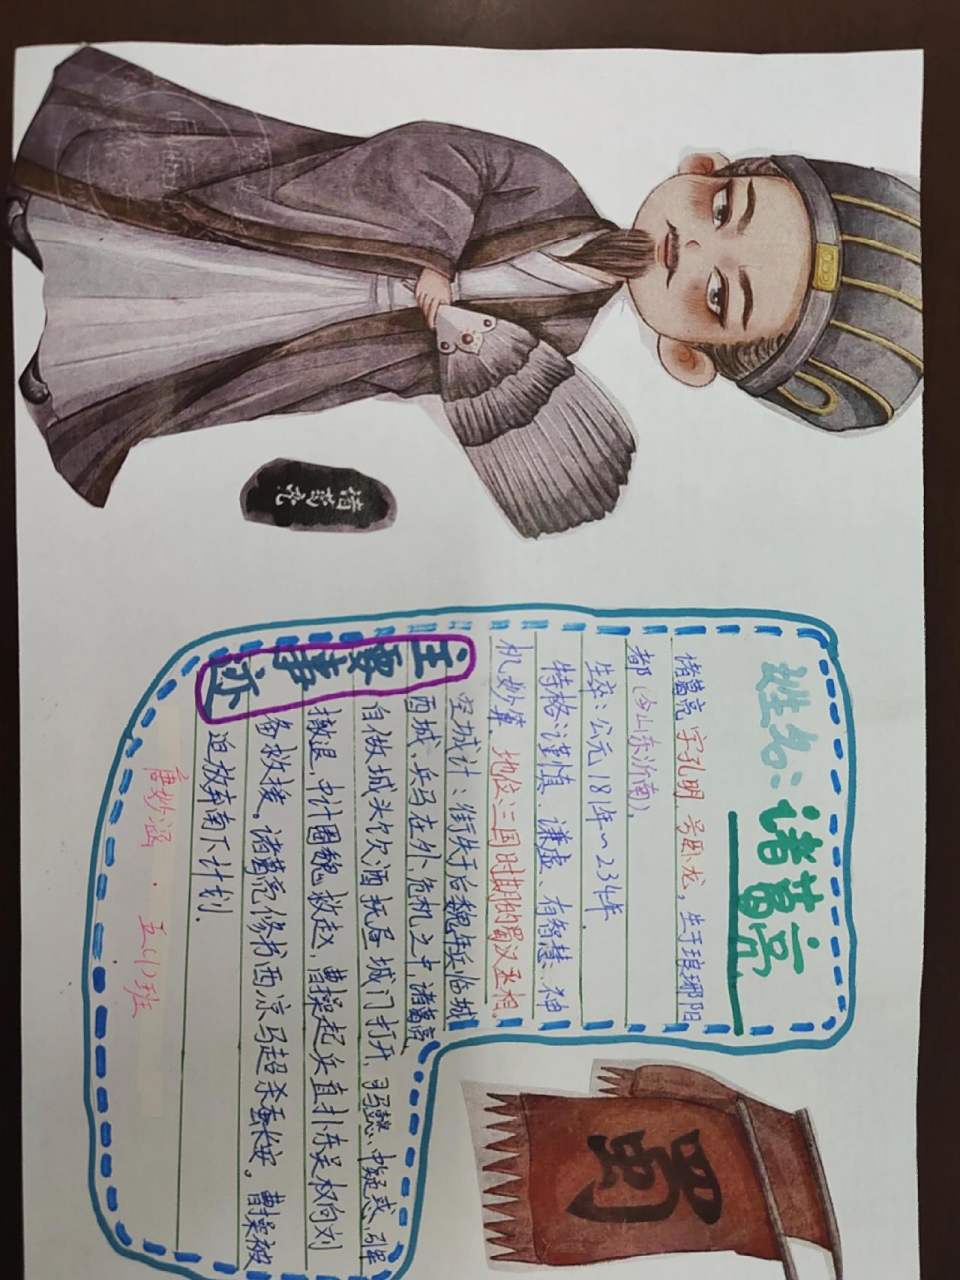 姓名：诸葛亮
诸葛亮，字孔明，号卧龙，生于琅琊阳
都（今山东沂南）。
生卒：公元181年~234年.
特格：谨慎、谦虚、有智慧、神
机妙算. 地位：三国时期的蜀汉丞相。
主要事迹
空城计：街铁于后魏年兵临城
西城、兵马在外、危机之中，诸葛亮
自做城头欠欠酒抚局城门打开，司马懿、中疑惑、引军
撤退，中计围魏救赵，曹操起兵直扑东吴权向刘
备救援。诸葛亮修书西凉马超杀奔长安，曹操被
迫放弃南下计划.
唐妙涵 . 五(1)班
诸葛亮
蜀